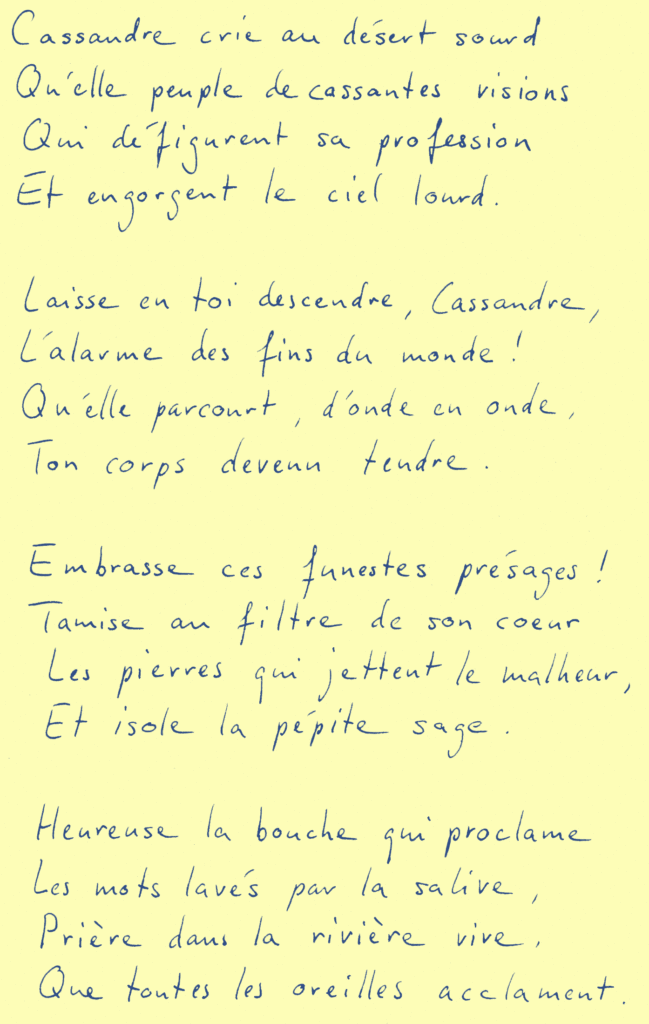 Cassandre crie au désert sourd
Qu'elle peuple de cassantes visions
Qui défigurent sa profession
Et engorgent le ciel lourd.
Laisse en toi descendre, Cassandre,
L'alarme des fins du monde !
Qu'elle parcourt, d'onde en onde,
Ton corps devenu tendre.
Embrasse ces funestes présages !
Tamise au filtre de son coeur
Les pierres qui jettent le malheur,
Et isole la pépite sage.
Heureuse la bouche qui proclame
Les mots lavés par la salive,
Prière dans la rivière vive,
Que toutes les oreilles acclament.